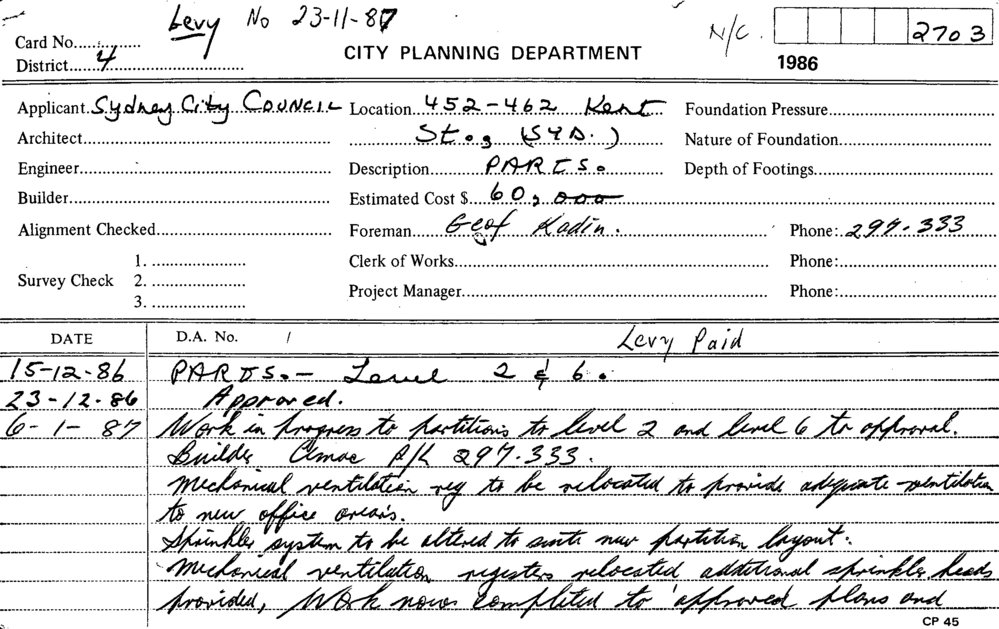 Levy No 23-11-87
N/C. 2703
Card No.
District 4
CITY PLANNING DEPARTMENT
1986
Applicant Sydney City COUNCIL Location 452-462 Kent Foundation Pressure
Architect St., (SYD.) Nature of Foundation
Engineer Description PARTS. Depth of Footings
Builder Estimated Cost $ 60,000
Alignment Checked Foreman Geof Kadin. Phone: 297.333
1. Clerk of Works Phone:
Survey Check 2.
3. Project Manager Phone:
DATE D.A. No. / Levy Paid
15-12-86 PARTS.- Level 2 & 6.
23-12-86 Approved.
6-1-87 Work in progress to partitions to level 2 and level 6 to approval.
Builder P/L 297.333.
Mechanical ventilation reg to be relocated to provide adequate ventilation
to new office areas.
Sprinkler system to be altered to suite new partition layout.
Mechanical ventilation registers relocated additional sprinkler heads
provided, Work now completed to approved plans and
CP 45